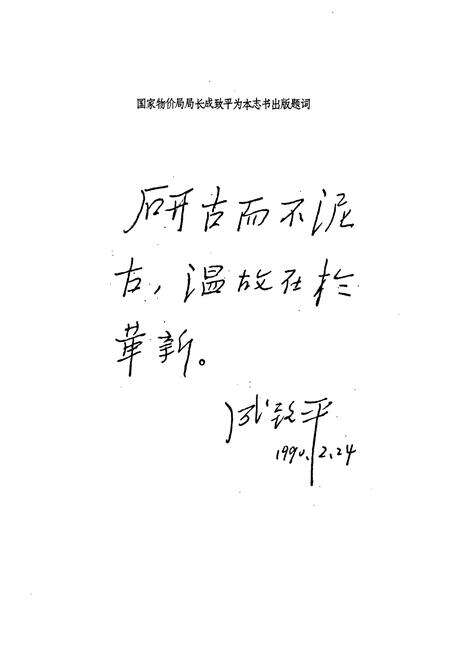 国家物价局局长成致平为本志书出版题词
研古而不泥
古，温故在于
革新。
成致平
1990.2.24